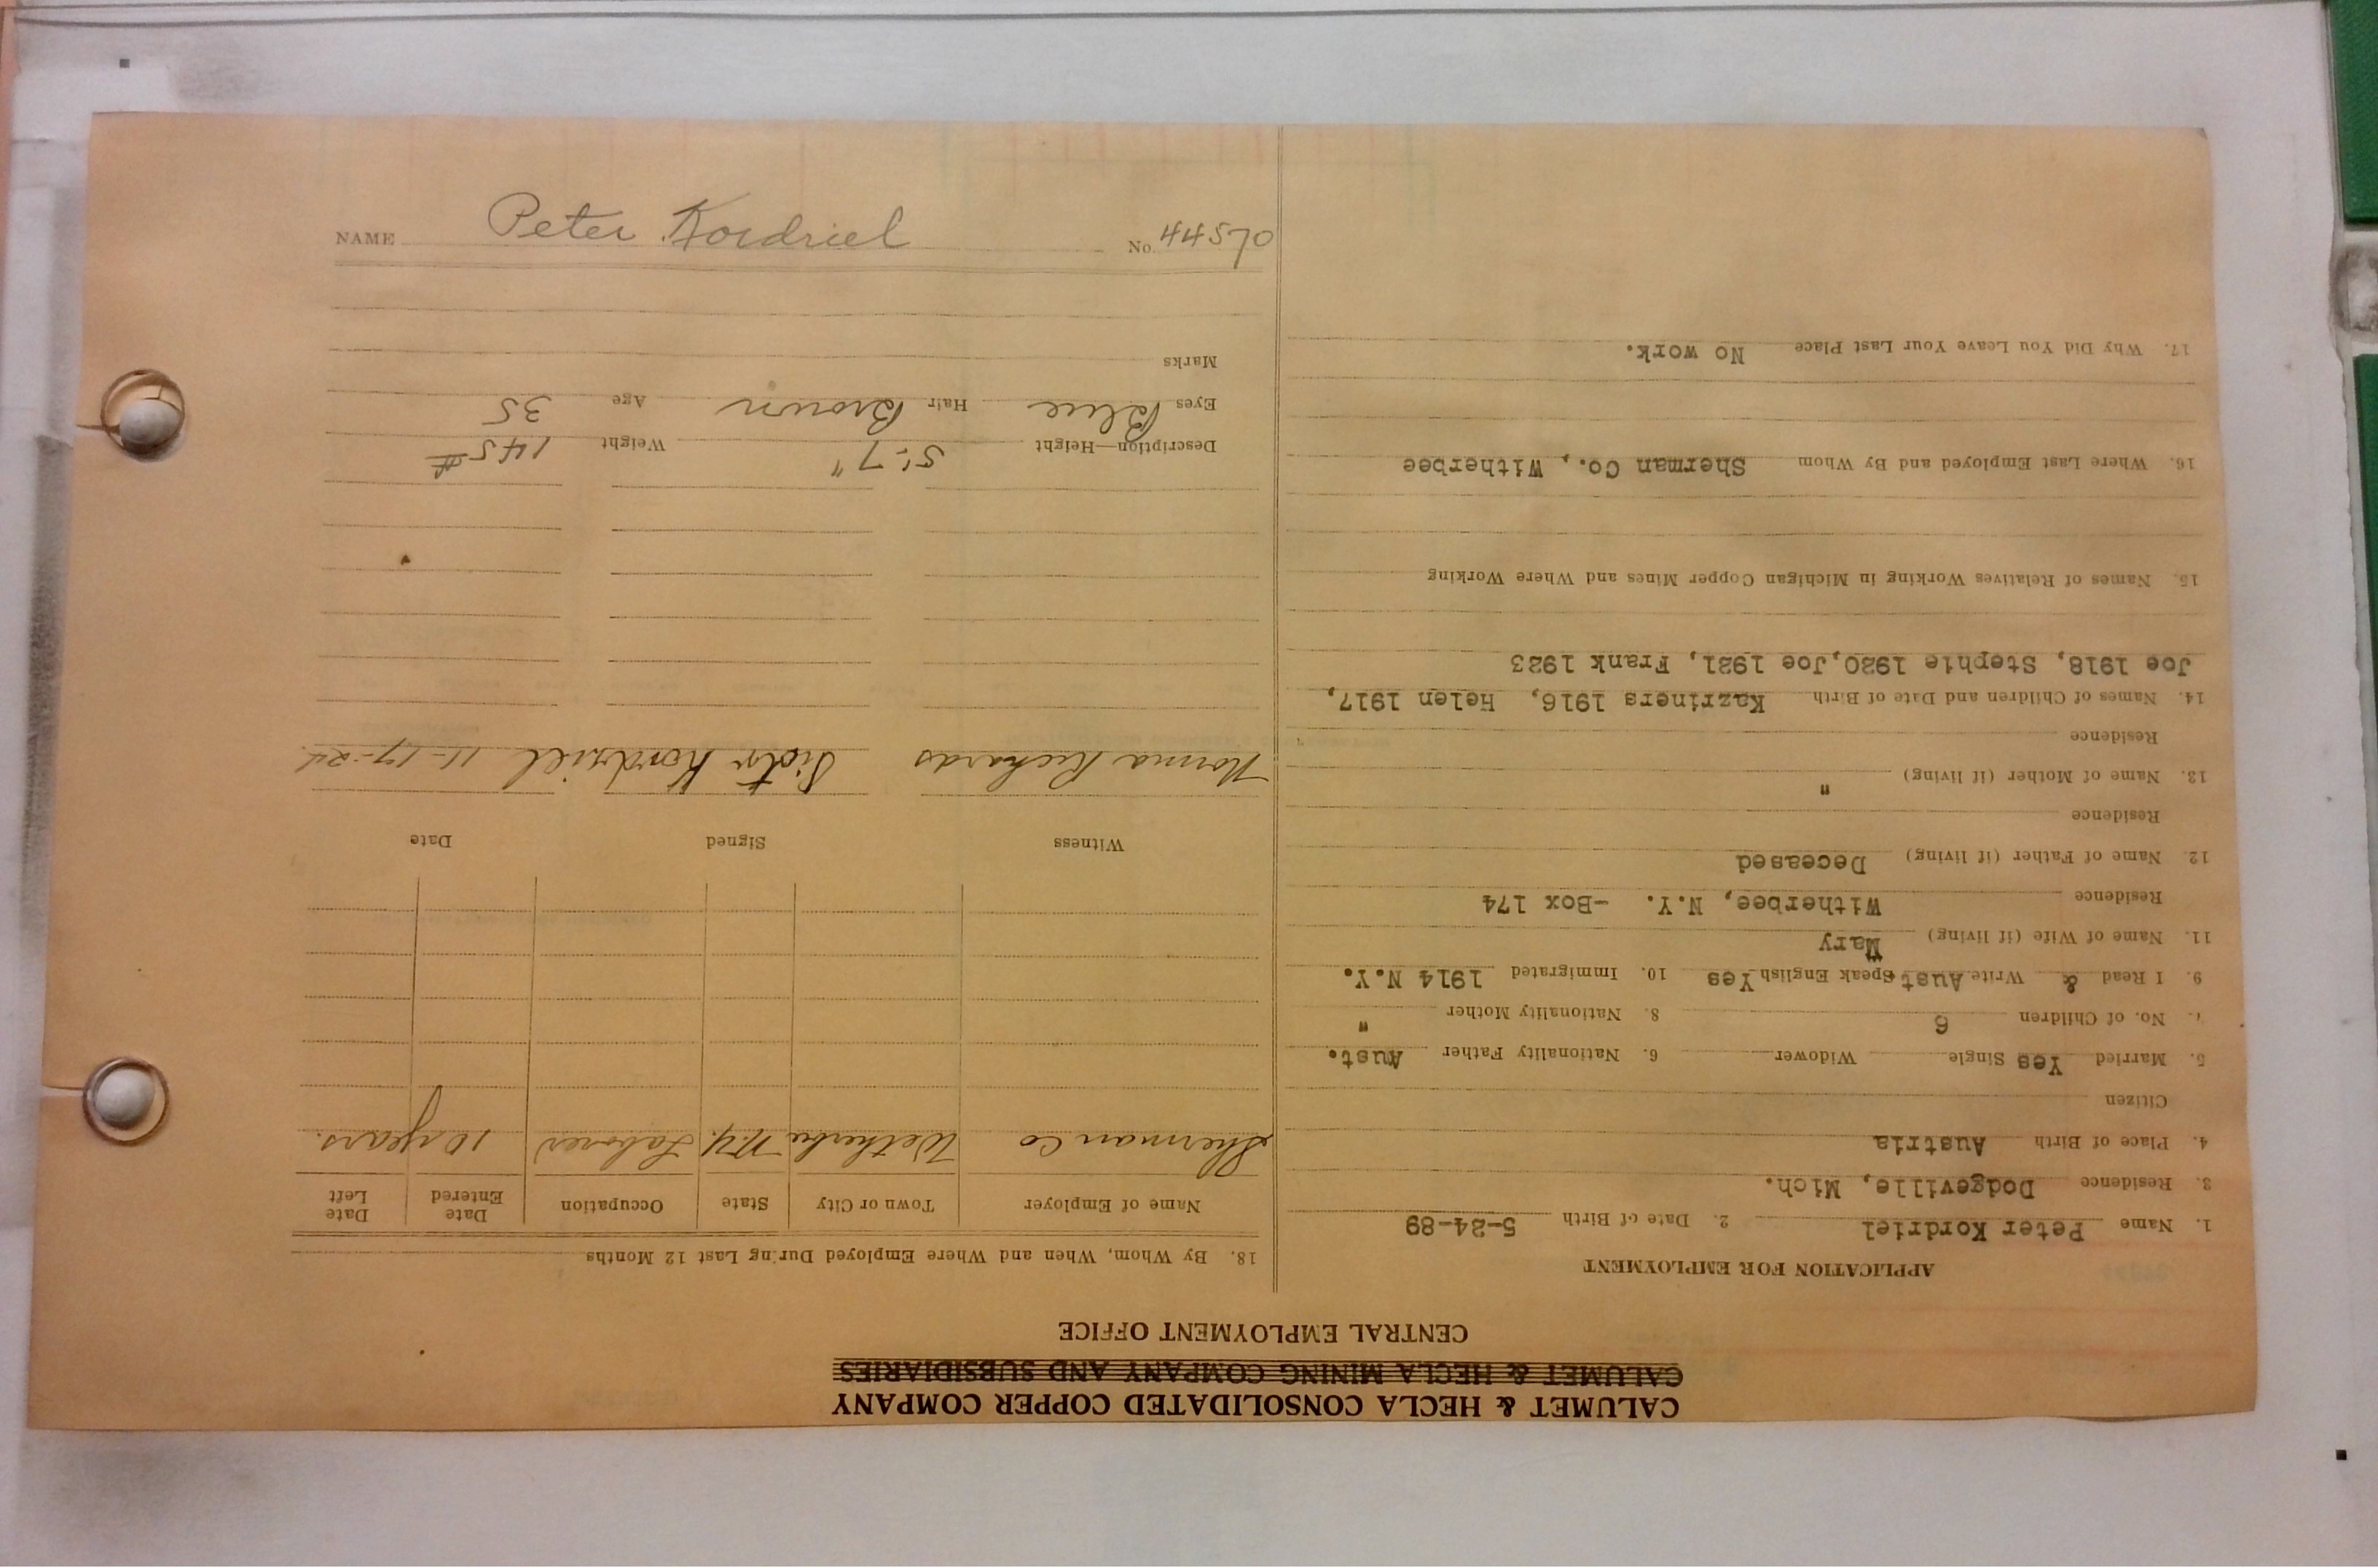 NAME Peter Kordriel No. 44570
CALUMET & HECLA CONSOLIDATED COPPER COMPANY
CALUMET & HECLA MINING COMPANY AND SUBSIDIARIES
CENTRAL EMPLOYMENT OFFICE
APPLICATION FOR EMPLOYMENT
1. Name Peter Kordriel 2. Date of Birth 5-24-89
3. Residence Dodgeville, Mich.
4. Place of Birth Austria
Citizen
5. Married Yes Single Widower 6. Nationality Father Aust.
7. No. of Children 6 8. Nationality Mother "
9. I Read & Write Aust. Speak English Yes 10. Immigrated 1914 N.Y.
11. Name of Wife (if living) Mary
Residence Witherbee, N.Y. -Box 174
12. Name of Father (if living) Deceased
Residence
13. Name of Mother (if living) "
Residence
14. Names of Children and Date of Birth Kazriners 1916, Helen 1917,
Joe 1918, Stephie 1920, Joe 1921, Frank 1923
15. Names of Relatives Working in Michigan Copper Mines and Where Working
16. Where Last Employed and By Whom Sherman Co., Witherbee
17. Why Did You Leave Your Last Place No work.
18. By Whom, When and Where Employed During Last 12 Months
Name of Employer Town or City State Occupation Date Entered Date Left
Sherman Co Wetherbe N.Y. Laborer 10 years.
Witness Signed Date
Norma Richards Piotr Kordziel 11-17-24.
Description—Height 5'-7" Weight 145#
Eyes Blue Hair Brown Age 35
Marks